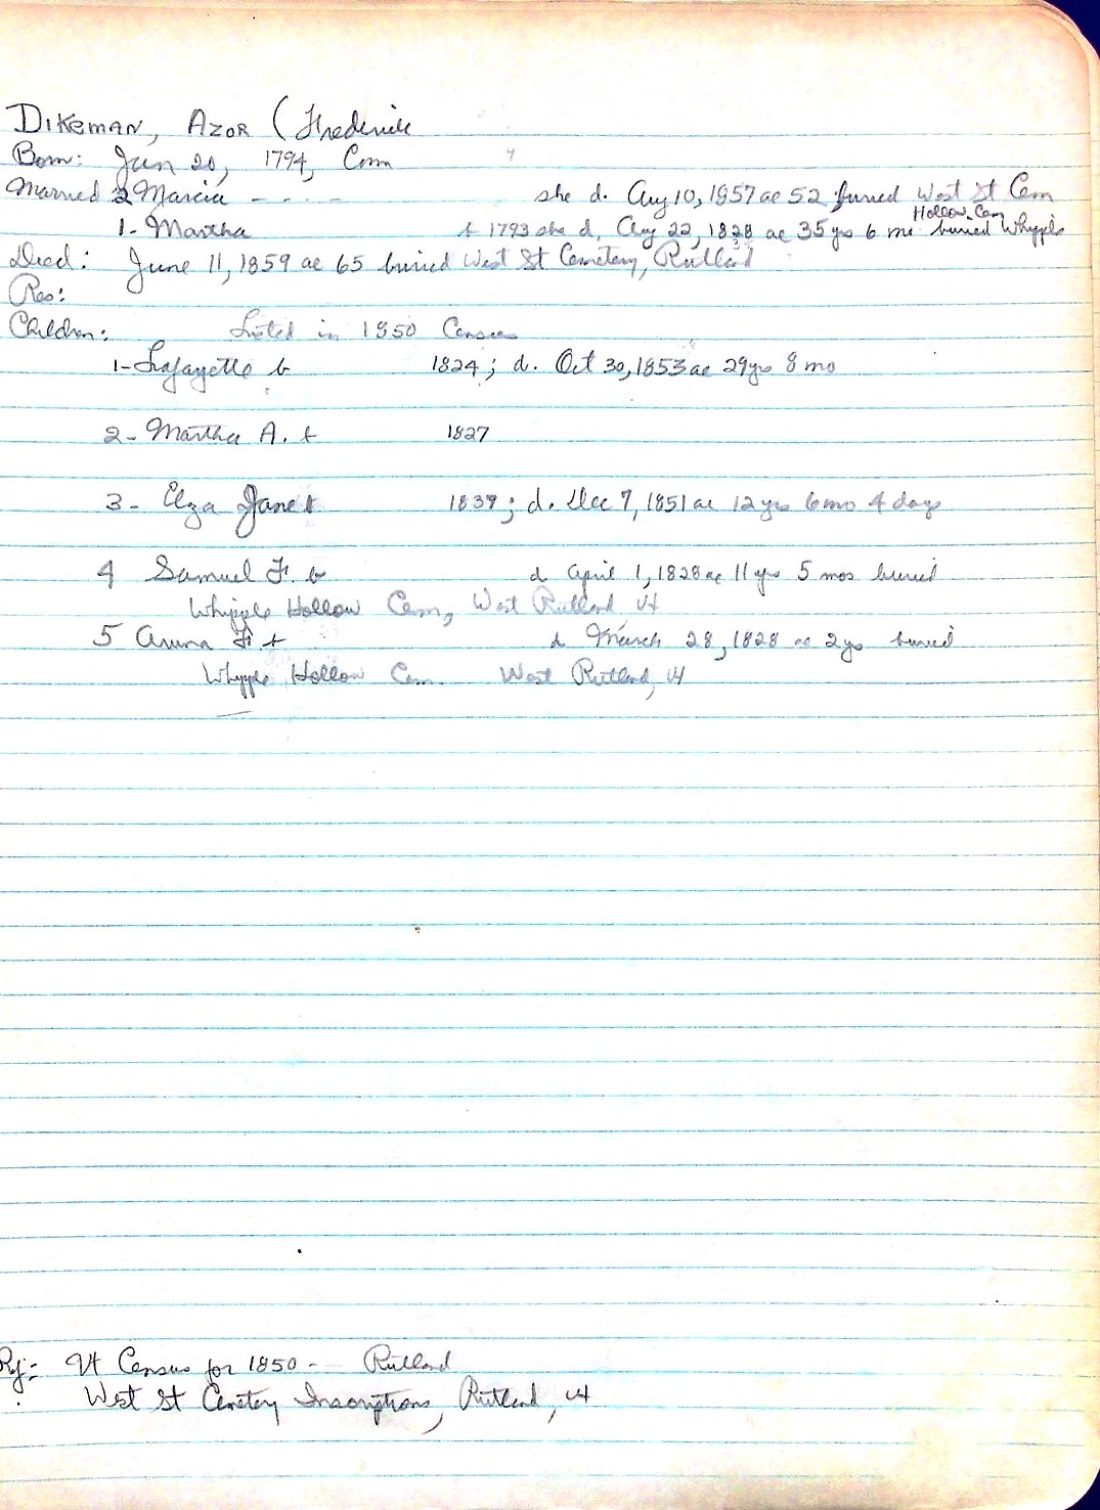 Dikeman, Azor (Frederick
Born: Jan 20, 1794, Conn
Married 2 Marcia - - - - she d. Aug 10, 1857 ae 52 buried West St Cem
1- Martha b 1793 she d. Aug 22, 1828 ae 35 yrs 6 mo buried Whipple Hollow Cem
Died: June 11, 1859 ae 65 buried West St Cemetery, Rutland
Res:
Children: Listed in 1850 Census
1- Lafayette b 1824; d. Oct 30, 1853 ae 29 yrs 8 mo
2- Martha A. b 1827
3- Elza Jane b 1839; d. Dec 7, 1851 ae 12 yrs 6 mo 4 days
4 Samuel F. b d April 1, 1828 ae 11 yrs 5 mos buried
Whipple Hollow Cem, West Rutland Vt
5 F b d March 28, 1828 ae 2 ys buried
Whipple Hollow Cem. West Rutland, Vt
Ref:- Vt Census for 1850 - Rutland
West St Cemetery Inscriptions, Rutland, Vt